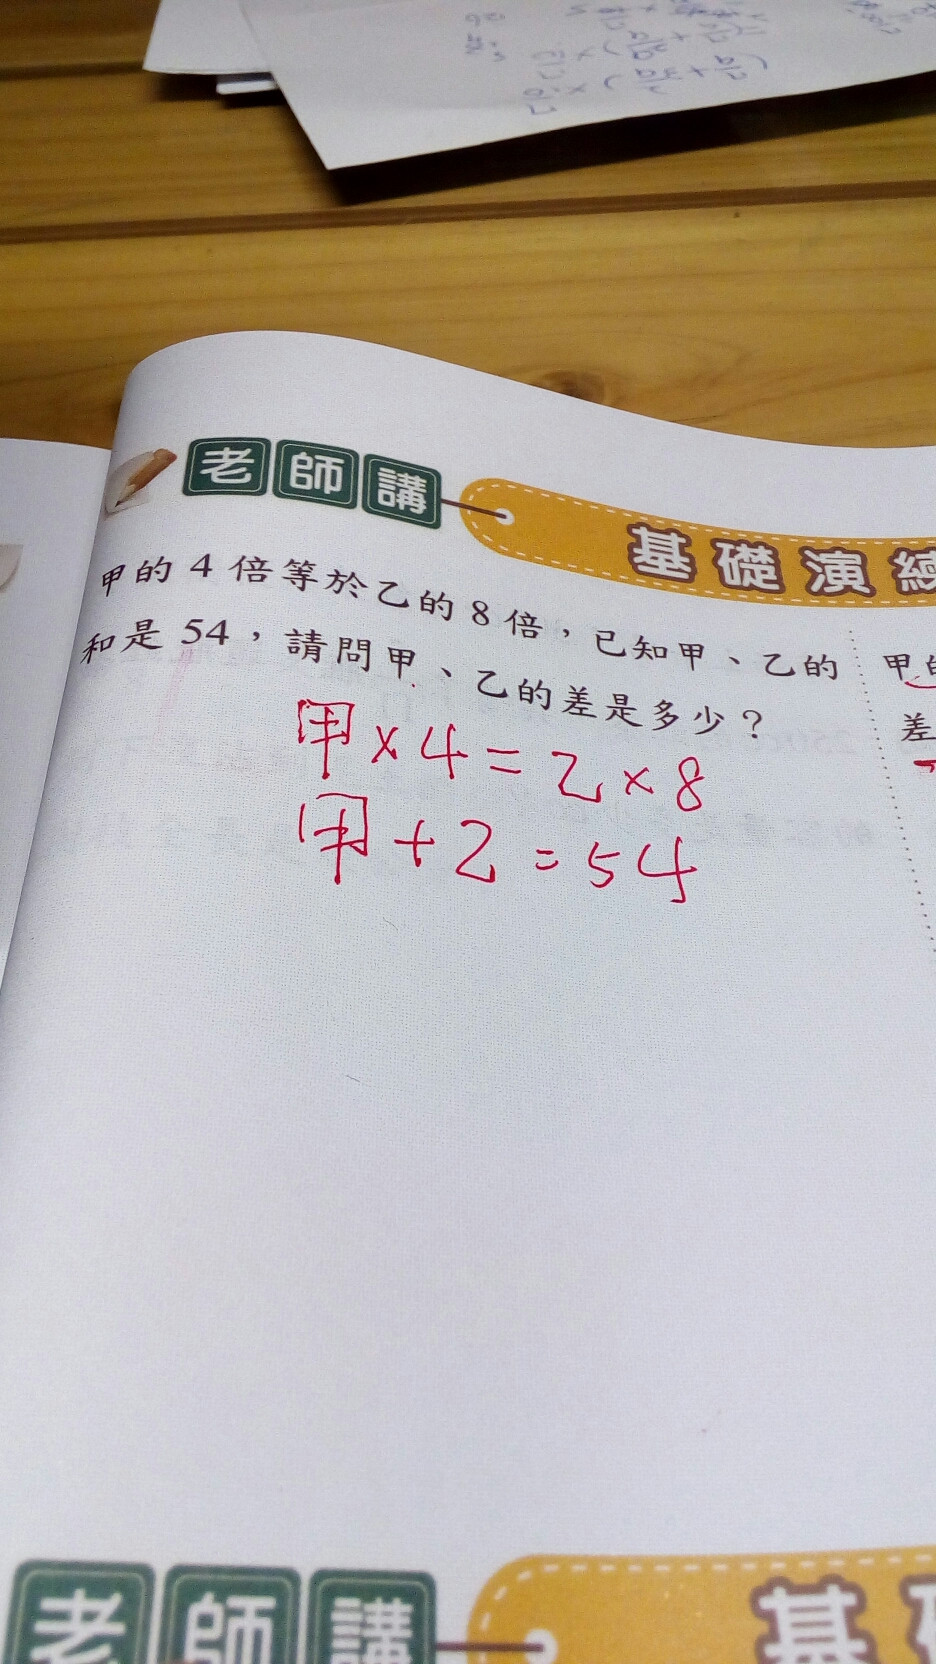 老師講
基礎演練
甲的4倍等於乙的8倍，已知甲、乙的
和是54，請問甲、乙的差是多少？
甲×4=乙×8
甲+乙=54
甲的
差
老師講
基